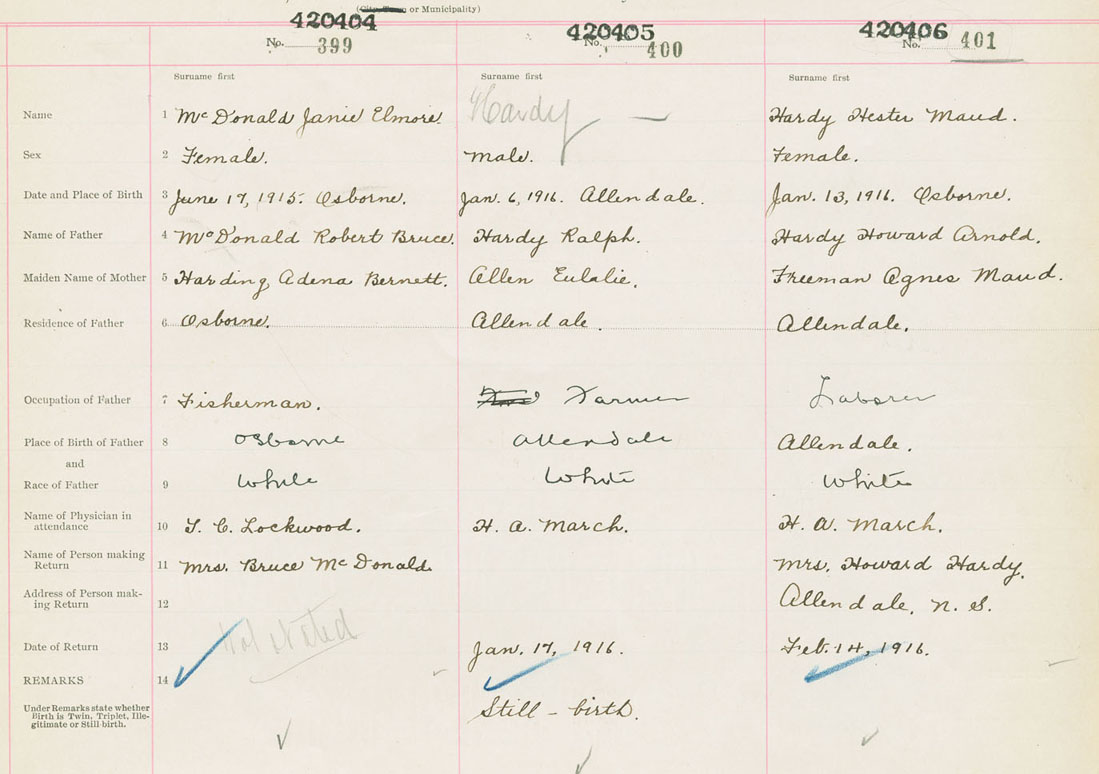 (City, Town or Municipality)
420404 420405 420406
No. 399 No. 400 No. 401
Surname first Surname first Surname first
Name 1 McDonald Janie Elmore. Hardy — Hardy Hester Maud.
Sex 2 Female. Male. Female.
Date and Place of Birth 3 June 17, 1915. Osborne. Jan. 6, 1916. Allendale. Jan. 13, 1916. Osborne.
Name of Father 4 McDonald Robert Bruce. Hardy Ralph. Hardy Howard Arnold.
Maiden Name of Mother 5 Harding Adena Bernett. Allen Eulalie. Freeman Agnes Maud.
Residence of Father 6 Osborne. Allendale. Allendale.
Occupation of Father 7 Fisherman. Farmer Laborer
Place of Birth of Father 8 Osborne Allendale Allendale.
and
Race of Father 9 White White White
Name of Physician in
attendance 10 T. C. Lockwood. H. A. March. H. A. March.
Name of Person making
Return 11 Mrs. Bruce McDonald. Mrs. Howard Hardy.
Address of Person mak-
ing Return 12 Allendale, N. S.
Date of Return 13 Not stated Jan. 17, 1916. Feb. 14, 1916.
REMARKS 14
Under Remarks state whether
Birth is Twin, Triplet, Ille-
gitimate or Still-birth. Still - birth.